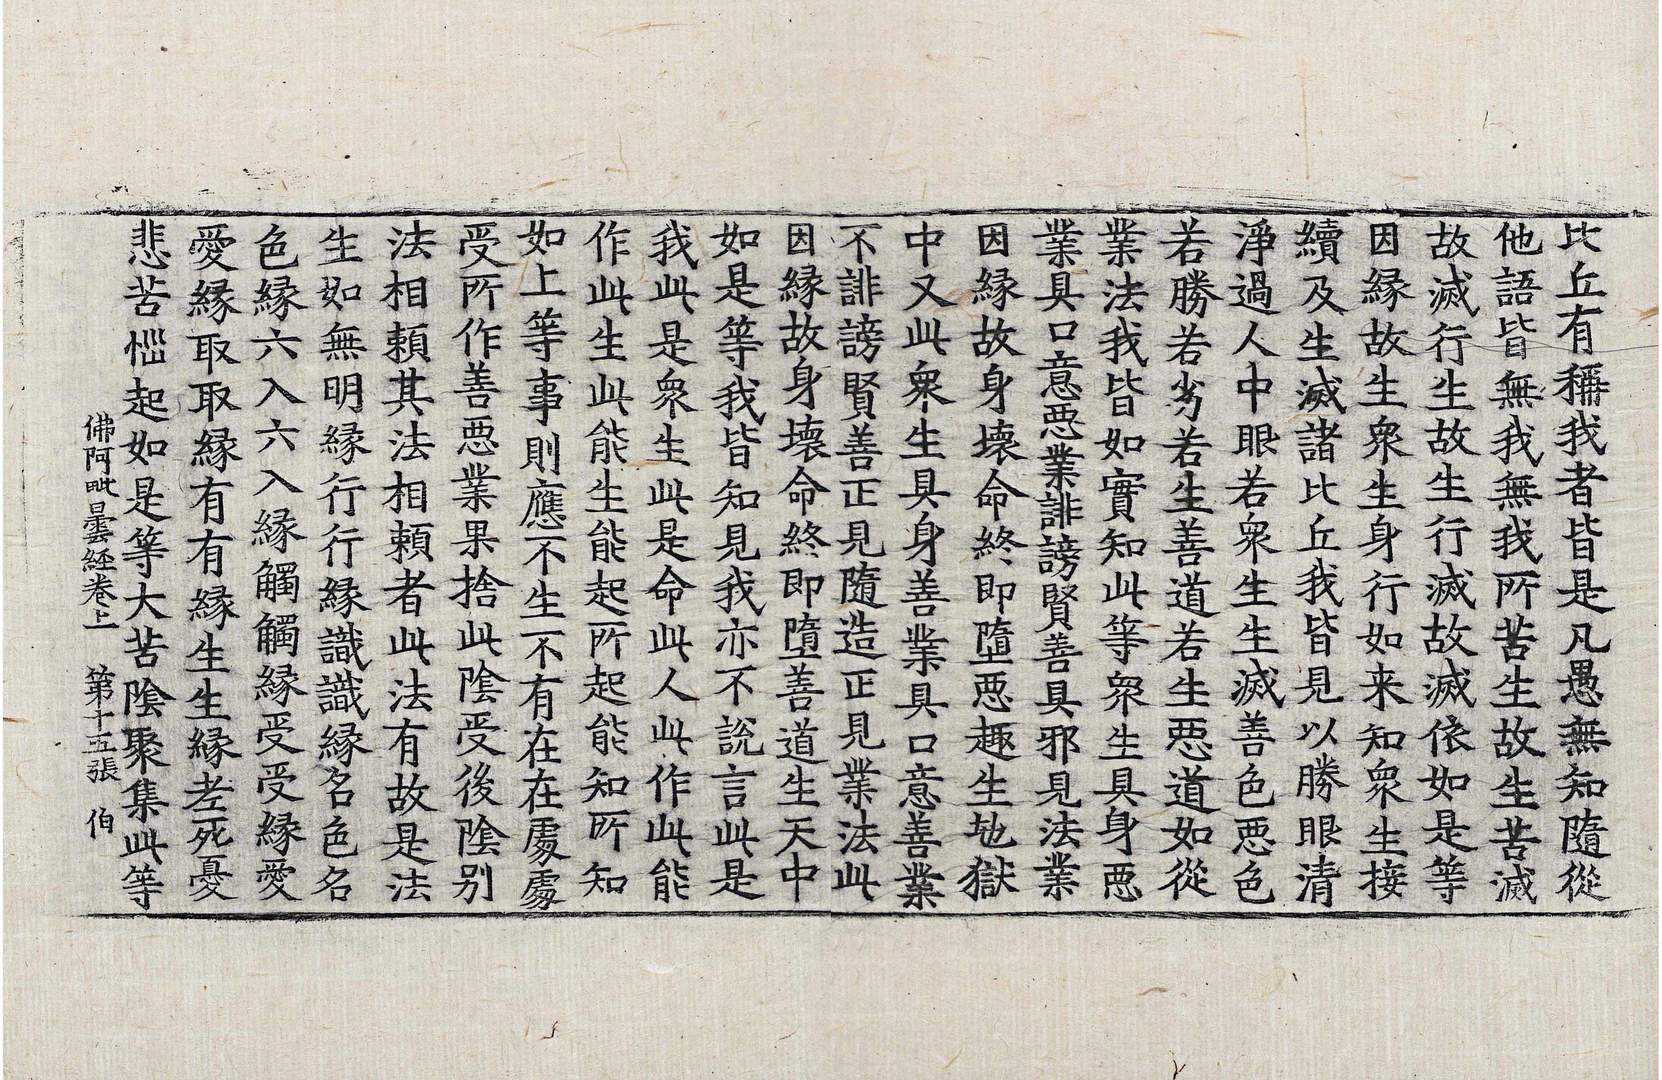 比丘有稱我者皆是凡愚無知隨從
他語皆無我無我所苦生故生苦滅
故滅行生故生行滅故滅依如是等
因縁故生衆生身行如来知衆生接
續及生滅諸比丘我皆見以勝眼清
淨過人中眼若衆生生滅善色惡色
若勝若劣若生善道若生惡道如從
業法我皆如實知此等衆生具身惡
業具口意惡業誹謗賢善具邪見法業
因縁故身壞命終即墮惡趣生地獄
中又此衆生具身善業具口意善業
不誹謗賢善正見隨造正見業法此
因縁故身壞命終即墮善道生天中
如是等我皆知見我亦不說言此是
我此是衆生此是命此人此作此能
作此生此能生能起所起能知所知
如上等事則應不生不有在在處處
受所作善惡業果捨此陰受後陰別
法相賴其法相賴者此法有故是法
生如無明縁行行縁識識縁名色名
色縁六入六入縁觸觸縁受受縁愛
愛縁取取縁有有縁生生縁老死憂
悲苦惱起如是等大苦陰聚集此等
佛阿毗曇経卷上 第十五張 伯